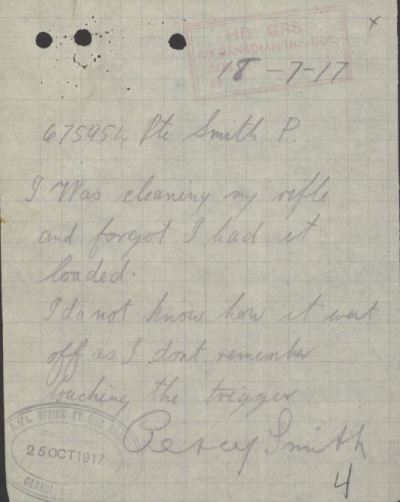 HD. QRS
CANADIAN INF. BDE.
18-7-17
x
675954 Pte Smith P.
I Was cleaning my rifle
and forgot I had it
loaded.
I do not know how it went
off as I dont remember
touching the trigger
Percy Smith
OFFICE
25 OCT 1917
CANADI
4